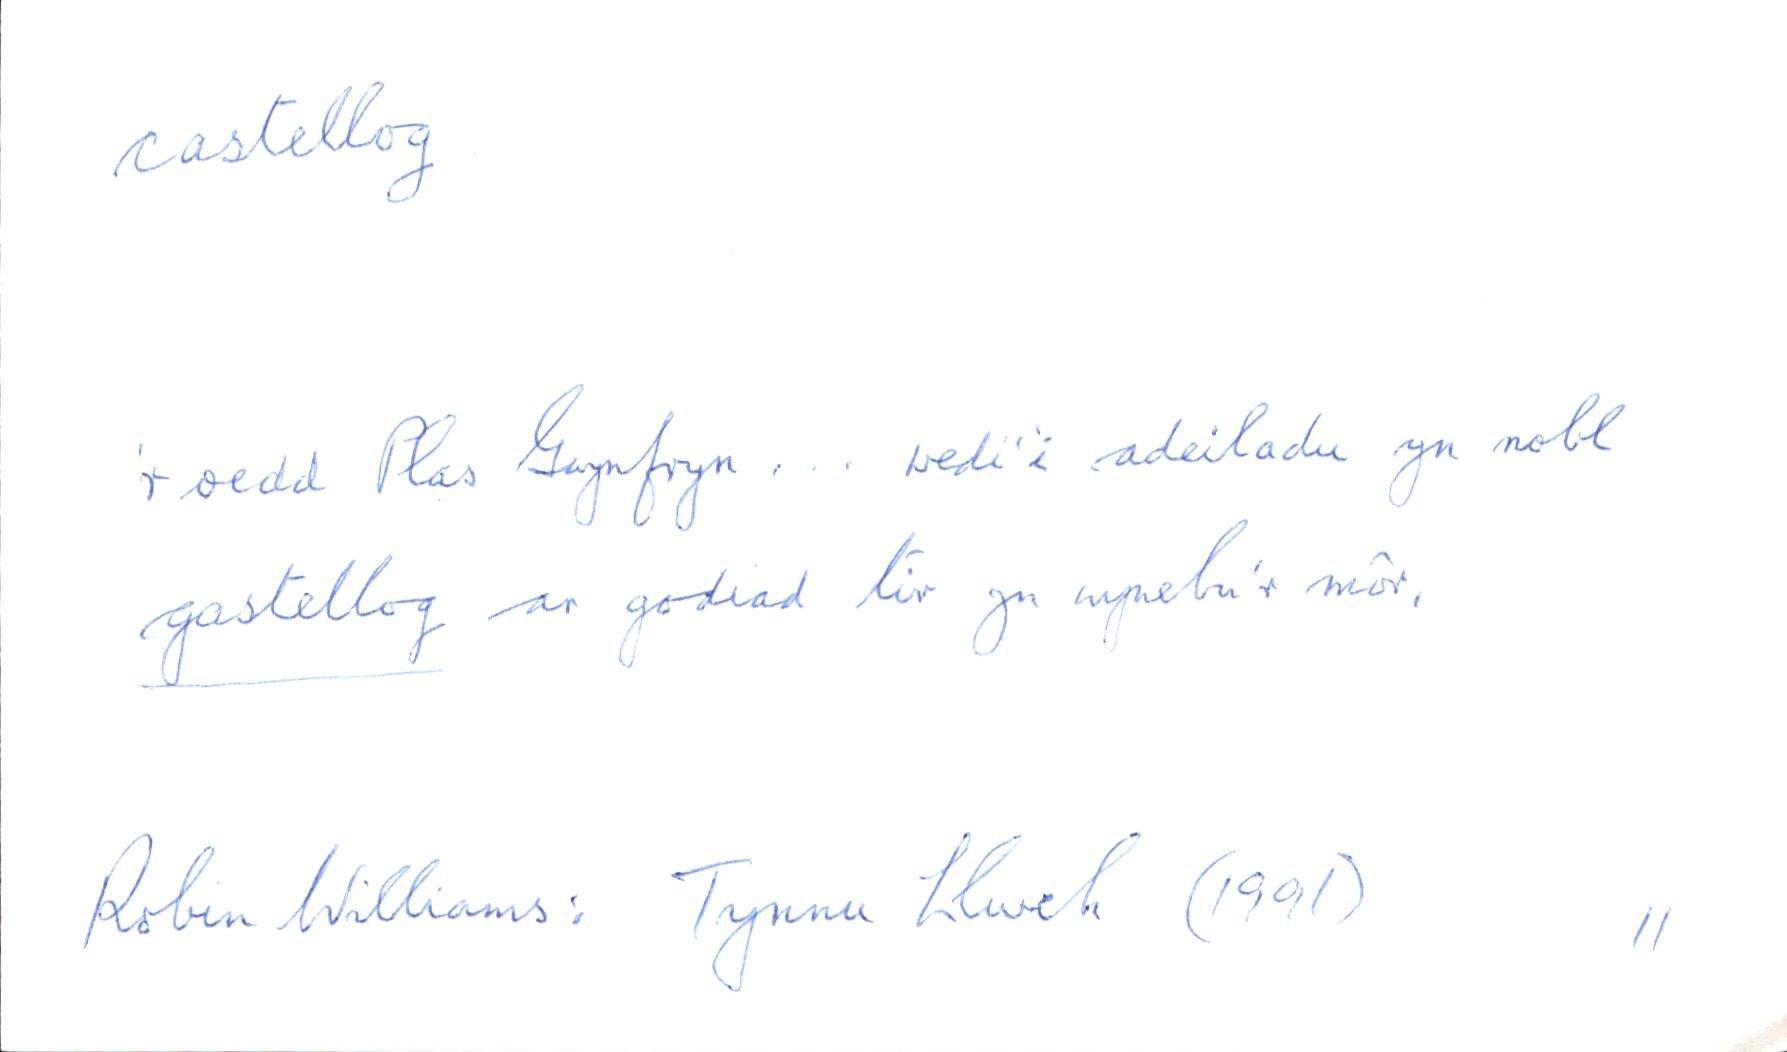 castellog
'r oedd Plas Gwynfryn . . . wedi'i adeiladu yn nobl
gastellog ar godiad tir yn wynebu'r môr.
Robin Williams: Tynnu Llwch (1991) 11